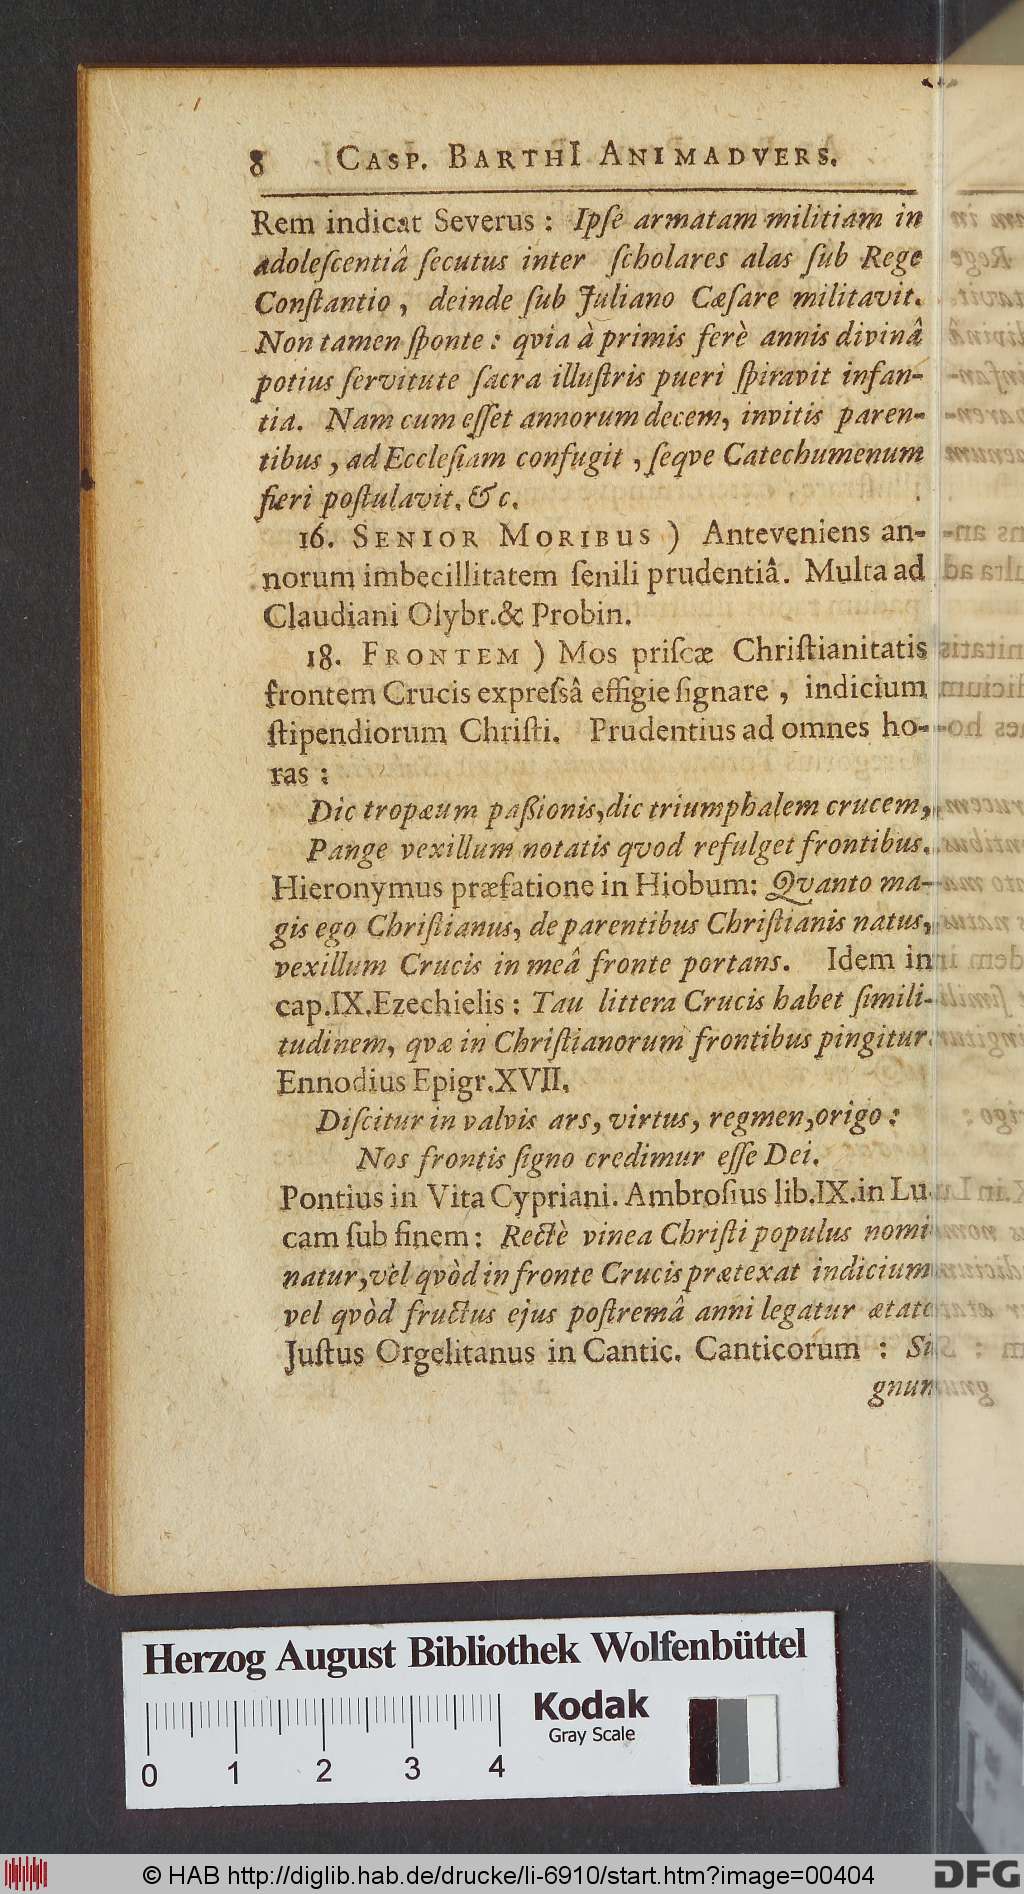 8 CASP. BARTHI ANIMADVERS.
Rem indicat Severus : Ipſe armatam militiam in
adoleſcentiâ ſecutus inter ſcholares alas ſub Rege
Conſtantio, deinde ſub Juliano Cæſare militavit.
Non tamen ſponte: qvia à primis ferè annis divinâ
potius ſervitute ſacra illuſtris pueri ſpiravit infan-
tia. Nam cum eſſet annorum decem, invitis paren-
tibus, ad Eccleſiam confugit, ſeqve Catechumenum
fieri poſtulavit. &c.
16. SENIOR MORIBUS ) Anteveniens an-
norum imbecillitatem ſenili prudentiâ. Multa ad
Claudiani Olybr. & Probin.
18. FRONTEM ) Mos priſcæ Chriſtianitatis
frontem Crucis expreſsâ effigie ſignare, indicium
ſtipendiorum Chriſti. Prudentius ad omnes ho-
ras :
Dic tropæum paßionis, dic triumphalem crucem,
Pange vexillum notatis qvod refulget frontibus.
Hieronymus præfatione in Hiobum: Qvanto ma-
gis ego Chriſtianus, de parentibus Chriſtianis natus,
vexillum Crucis in meâ fronte portans. Idem in
cap. IX. Ezechielis : Tau littera Crucis habet ſimili-
tudinem, qvæ in Chriſtianorum frontibus pingitur.
Ennodius Epigr. XVII.
Diſcitur in valvis ars, virtus, regmen, origo :
Nos frontis ſigno credimur eſſe Dei.
Pontius in Vita Cypriani. Ambroſius lib. IX. in Lu-
cam ſub finem : Rectè vinea Chriſti populus nomi
natur, vel qvòd in fronte Crucis prætexat indicium
vel qvòd fructus ejus poſtremâ anni legatur ætate
Juſtus Orgelitanus in Cantic. Canticorum : Si
gnum
Herzog August Bibliothek Wolfenbüttel
Kodak
Gray Scale
0 1 2 3 4
© HAB http://diglib.hab.de/drucke/li-6910/start.htm?image=00404
DFG